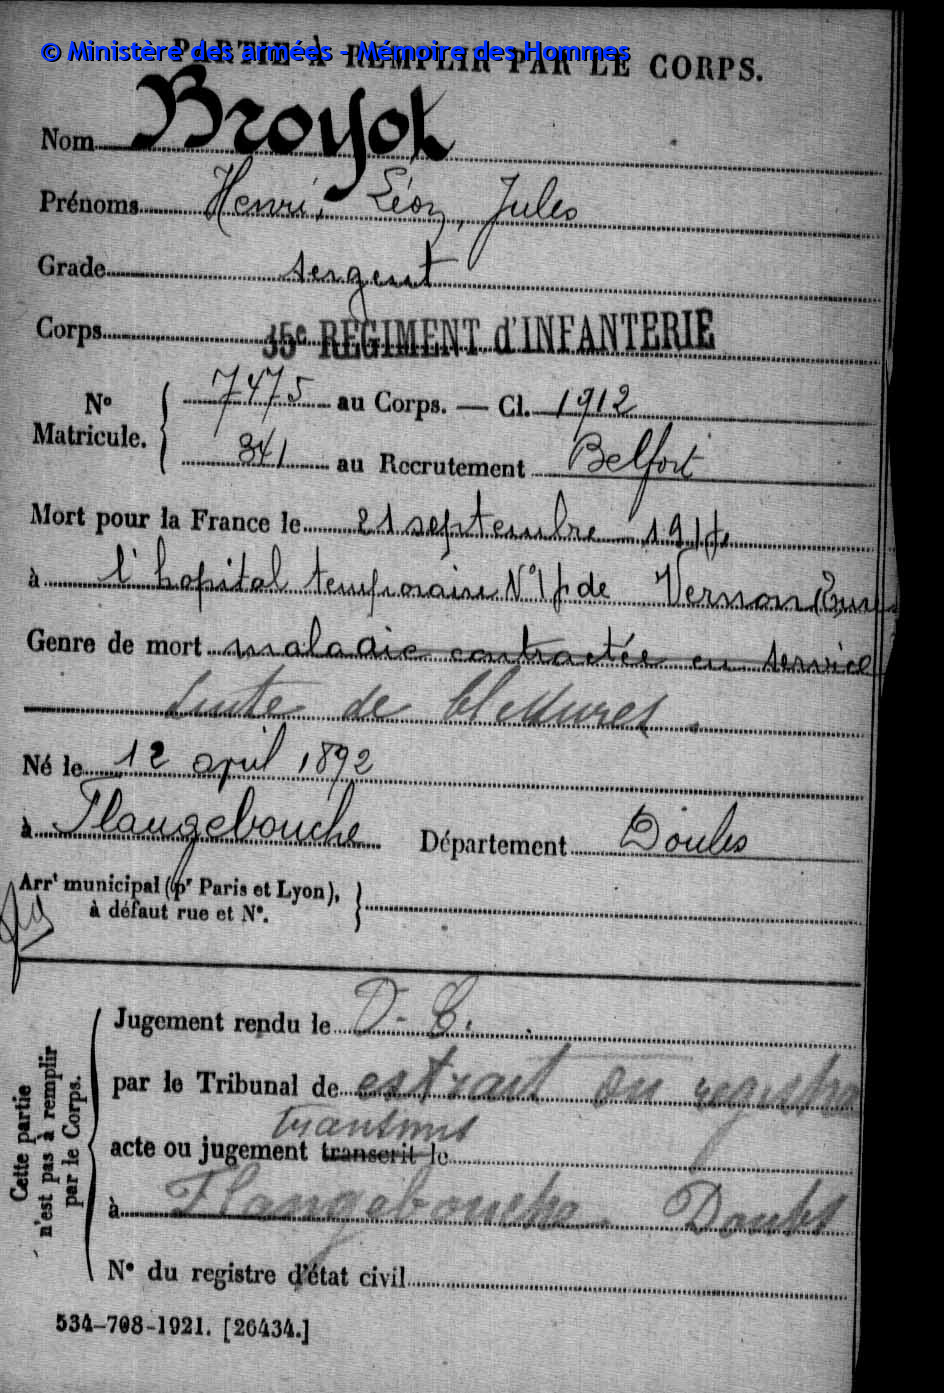 © Ministère des armées - Mémoire des Hommes
PARTIE À REMPLIR PAR LE CORPS.
Nom Broyot
Prénoms Henri, Léon, Jules
Grade sergent
Corps 35e REGIMENT d'INFANTERIE
N° Matricule. 7475 au Corps. — Cl. 1912
341 au Recrutement Belfort
Mort pour la France le 21 septembre 1914
à l'hopital temporaire N° 14 de Vernon (Eure)
Genre de mort maladie contractée en service
suite de blessures.
Né le 12 april 1892
à Flangebouche Département Doubs
Arrt municipal (pr Paris et Lyon),
à défaut rue et N°.
Cette partie
n'est pas à remplir
par le Corps.
Jugement rendu le D. C.
par le Tribunal de extrait du registre
transmis
acte ou jugement transcrit le
à Flangebouche. Doubs
N° du registre d'état civil
534-708-1921. [26434.]